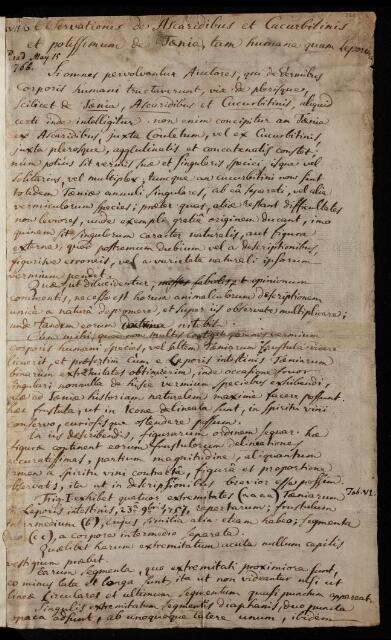 Observationes de Ascaridibus et Cucurbitinis
et potissimum de Tænia, tam humana quam leporina
Read May 15
766.
Si omnes pervolvantur Auctores, qui de vermibus
Corporis humani tractaverunt, vix de plerisque,
scilicet de Tænia, Ascaridibus et Cucurbitinis, aliquid
certi inde intelligitur. non enim concipitur an Tænia
ex Ascaridibus, juxta Couletum, vel ex Cucurbitinis,
juxta plerosque, agglutinatis et concatenatis constet:
num potius sit vermis suæ et singularis speciei, isque vel
solitarius, vel multiplex; tumque an Cucurbitini non sint
totidem Tæniæ annuli singulares, ab eâ separati, vel alia
vermiculorum species; præter quas, aliæ restant difficultates
non leviores, unde exemple gratiâ originem ducant, imo
quinam sit singulorum caracter naturalis, aut figura
externa; quod postremum dubium vel a descriptionibus,
figurisque erroneis, vel a varietate naturali ipsorum
vermium pendet.
Quæ ut dilucidentur, opinionum
commentis, necesse est horum animalculorum descriptionem
unicè a naturâ depromere, et super iis observata multiplicare;
unde tandem eorum
Cum mihi, quoque non multis contigit, omnis vermium
corporis humani species, vel saltem Tæniarum frustula videre
licuerit, et præsertim Cum e Leporis intestinis Tæniarum
binarum extremitates obtinuerim, inde occasione fruor
singulari nonnulla de hisce vermium speciebus exhibendi,
quæ ad Tæniæ historiam naturalem maxime facere possunt.
hæc frustula, ut in Icone delineata sunt, in Spiritu vini
conservo, curiosisque ostendere possum.
In iis describendis, figurarum ordinem sequar. hæ
figuræ continent eorum frustulorum delineationes
accuratissimas, partium magnitudine, aliquantum
tamen a spiritu vini contractâ, figurâ et proportione
observatis, ita ut in descriptionibus brevior esse possim.
Fig. I exhibet quatuor extremitates (a a a a) Tæniarum
Tab. VI.
e Leporis intestinis, 23.ª 9bris 1757, repertarum; frustulum
intermedium (b), cujus similia alia etiam habeo; segmenta
(c c), a corpore intermedio separata.
Quælibet harum extremitatum acuta nullum capitis
vestigium præbet.
Earum segmenta, quæ extremitati proximiora sunt,
eo minus lata et longa sunt, ita ut non videantur nisi ut
lineæ circulares et ultimum segmentum quasi punctum appareat.
Singulis extremitatum segmentis diaphanis, duo puncta
opaca adsunt, ab unoquoque latere unum, ibidem